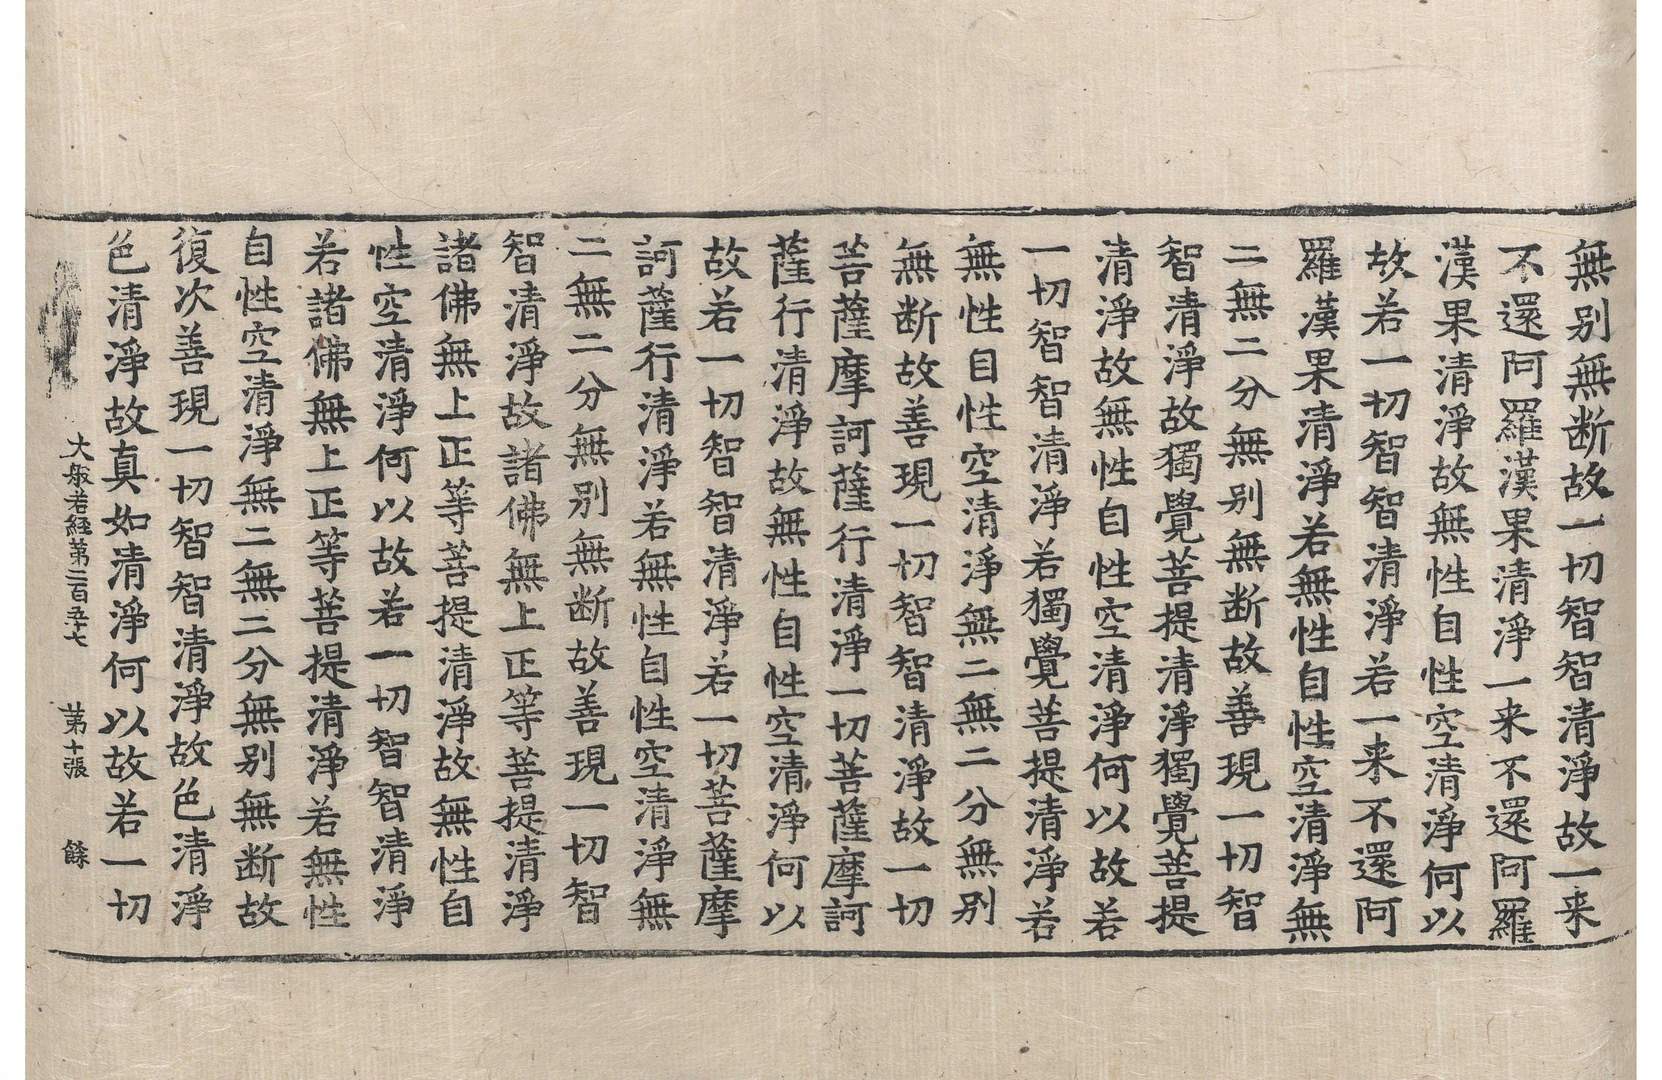 無别無断故一切智智清淨故一来
不還阿羅漢果清淨一来不還阿羅
漢果清淨故無性自性空清淨何以
故若一切智智清淨若一来不還阿
羅漢果清淨若無性自性空清淨無
二無二分無别無断故善現一切智
智清淨故獨覺菩提清淨獨覺菩提
清淨故無性自性空清淨何以故若
一切智智清淨若獨覺菩提清淨若
無性自性空清淨無二無二分無别
無断故善現一切智智清淨故一切
菩薩摩訶薩行清淨一切菩薩摩訶
薩行清淨故無性自性空清淨何以
故若一切智智清淨若一切菩薩摩
訶薩行清淨若無性自性空清淨無
二無二分無别無断故善現一切智
智清淨故諸佛無上正等菩提清淨
諸佛無上正等菩提清淨故無性自
性空清淨何以故若一切智智清淨
若諸佛無上正等菩提清淨若無性
自性空清淨無二無二分無别無断故
復次善現一切智智清淨故色清淨
色清淨故真如清淨何以故若一切
大般若経苐二百五十七 苐十張 餘